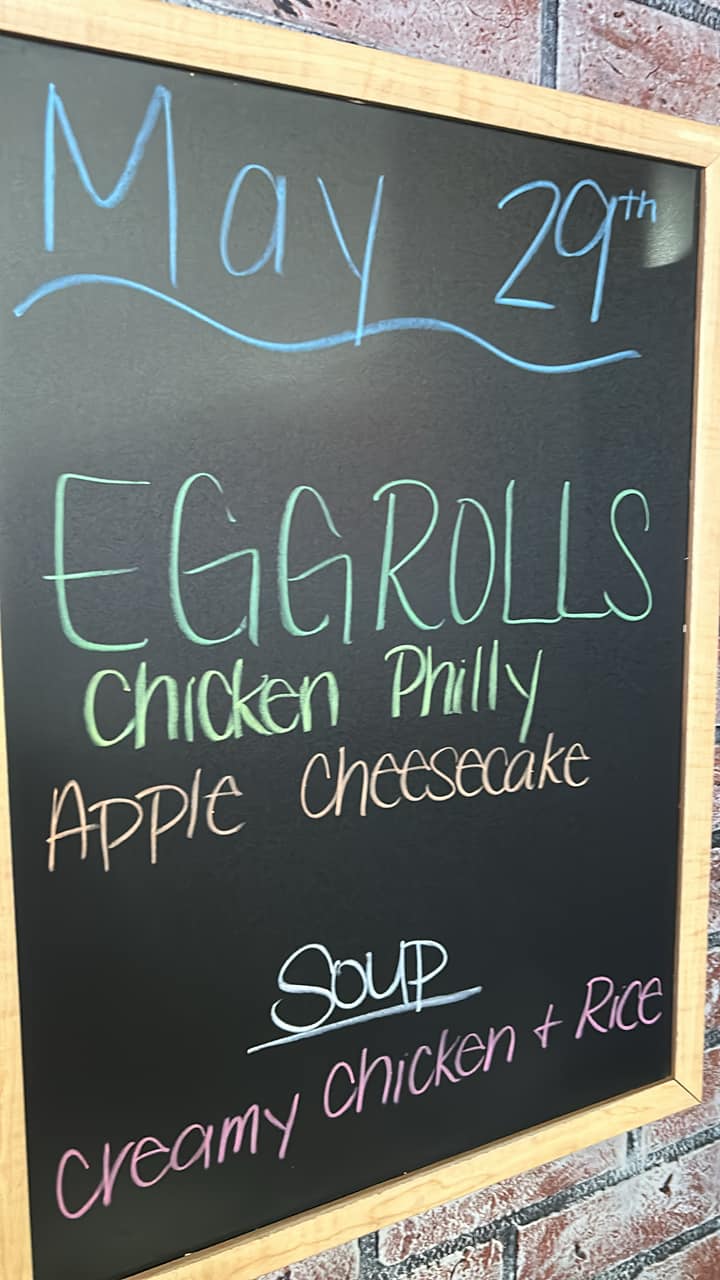 May 29th
EGGROLLS
Chicken Philly
Apple Cheesecake
Soup
Creamy Chicken + Rice